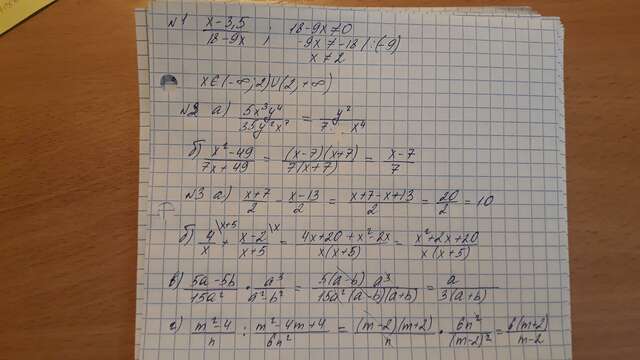 №1 (x-3,5)/(18-9x) ; 18-9x≠0
-9x≠-18 | :(-9)
x≠2
x∈(-∞;2)∪(2,+∞)
№2 a) (5x³y⁴)/(35y²x⁷) = y²/(7 x⁴)
б) (x²-49)/(7x+49) = ((x-7)(x+7))/(7(x+7)) = (x-7)/7
№3 a) (x+7)/2 - (x-13)/2 = (x+7-x+13)/2 = 20/2 = 10
б) 4/x \x+5 + (x-2)/(x+5) \x = (4x+20+x²-2x)/(x(x+5)) = (x²+2x+20)/(x(x+5))
в) (5a-5b)/(15a²) · a³/(a²-b²) = (5(a-b) a³)/(15a²(a-b)(a+b)) = a/(3(a+b))
г) (m²-4)/n : (m²-4m+4)/(6n²) = ((m-2)(m+2))/n · 6n²/(m-2)² = 6(m+2)/(m-2)